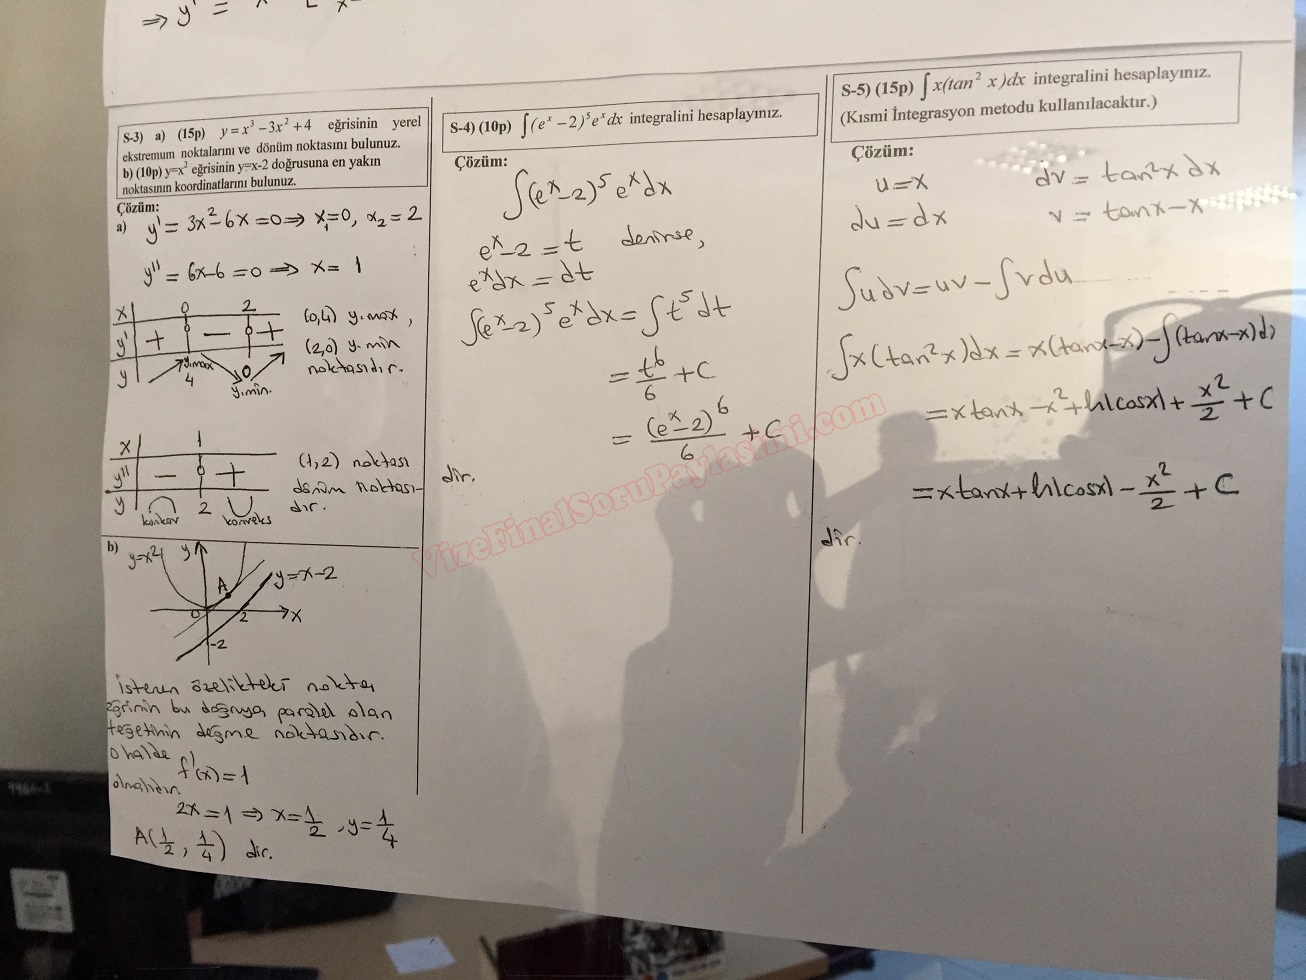 ⇒ y' =
S-3) a) (15p) y = x³ − 3x² + 4 eğrisinin yerel
ekstremum noktalarını ve dönüm noktasını bulunuz.
b) (10p) y=x² eğrisinin y=x-2 doğrusuna en yakın
noktasının koordinatlarını bulunuz.
Çözüm:
a) y' = 3x²-6x = 0 ⇒ x₁=0, x₂ = 2
y'' = 6x-6 = 0 ⇒ x = 1
x 0 2
y' + − +
y y.max 4 0 y.min.
(0,4) y.max,
(2,0) y.min
noktasıdır.
x 1
y'' − +
y konkav 2 konveks
(1,2) noktası
dönüm noktası-
dır.
b) y=x² y A y=x-2
0 2 x
-2
istenen özelikteki nokta
eğrinin bu doğruya paralel olan
teğetinin değme noktasıdır.
O halde
f'(x) = 1
olmalıdır.
2x = 1 ⇒ x = 1/2, y = 1/4
A(1/2, 1/4) dir.
S-4) (10p) ∫(eˣ − 2)⁵eˣdx integralini hesaplayınız.
Çözüm:
∫(eˣ-2)⁵ eˣdx
eˣ-2 = t denirse,
eˣdx = dt
∫(eˣ-2)⁵ eˣdx = ∫t⁵dt
= t⁶/6 + C
= (eˣ-2)⁶/6 + C
dir.
S-5) (15p) ∫x(tan² x)dx integralini hesaplayınız.
(Kısmi İntegrasyon metodu kullanılacaktır.)
Çözüm:
u=x dv = tan²x dx
du = dx v = tanx-x
∫udv = uv - ∫vdu
∫x(tan²x)dx = x(tanx-x) - ∫(tanx-x)dx
= xtanx - x² + ln|cosx| + x²/2 + C
= xtanx + ln|cosx| - x²/2 + C
dir.
VizeFinalSoruPaylasimi.com